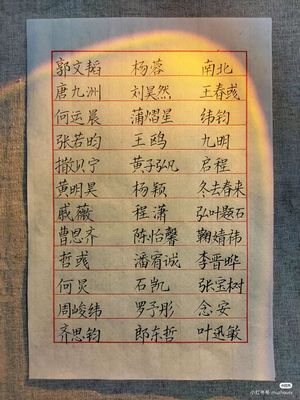 郭文韬 杨蓉 南北
唐九洲 刘昊然 王春彧
何运晨 蒲熠星 纬钧
张若昀 王鸥 九明
撒贝宁 黄子弘凡 启程
黄明昊 杨颖 冬去春来
戚薇 程潇 弘叶题石
曹恩齐 陈怡馨 鞠婧祎
哲彧 潘宥诚 李晋晔
何炅 石凯 张宝树
周峻纬 罗予彤 念安
齐思钧 郎东哲 叶迅敏
小红书